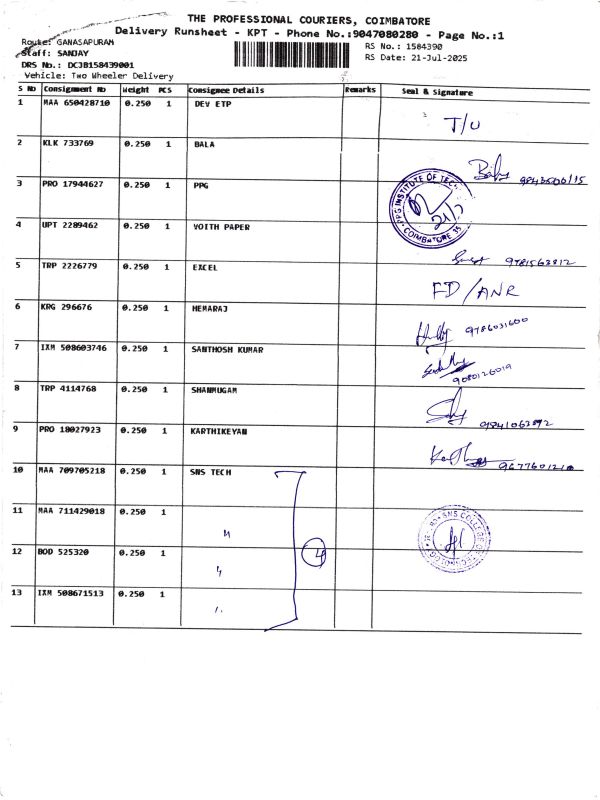 THE PROFESSIONAL COURIERS, COIMBATORE
Delivery Runsheet - KPT - Phone No.:9047080280 - Page No.:1
Route: GANASAPURAM
RS No.: 1584390
Staff: SANJAY
RS Date: 21-Jul-2025
DRS No.: DCJB158439001
Vehicle: Two Wheeler Delivery
S No Consignment No Weight PCS Consignee Details Remarks Seal & Signature
1 MAA 650428710 0.250 1 DEV ETP
T/U
2 KLK 733769 0.250 1 BALA
3 PRO 17944627 0.250 1 PPG
PPG INSTITUTE OF TECH
COIMBATORE 35
4 UPT 2289462 0.250 1 VOITH PAPER
9781563812
5 TRP 2226779 0.250 1 EXCEL
FD/ANR
6 KRG 296676 0.250 1 HEMARAJ
9786031600
7 IXM 508603746 0.250 1 SANTHOSH KUMAR
9080126019
8 TRP 4114768 0.250 1 SHANMUGAM
9841062892
9 PRO 18027923 0.250 1 KARTHIKEYAN
10 MAA 709705218 0.250 1 SNS TECH
11 MAA 711429018 0.250 1 "
SNS COLLEGE OF TECHNOLOGY
12 BOD 525320 0.250 1 " 4
13 IXM 508671513 0.250 1 "